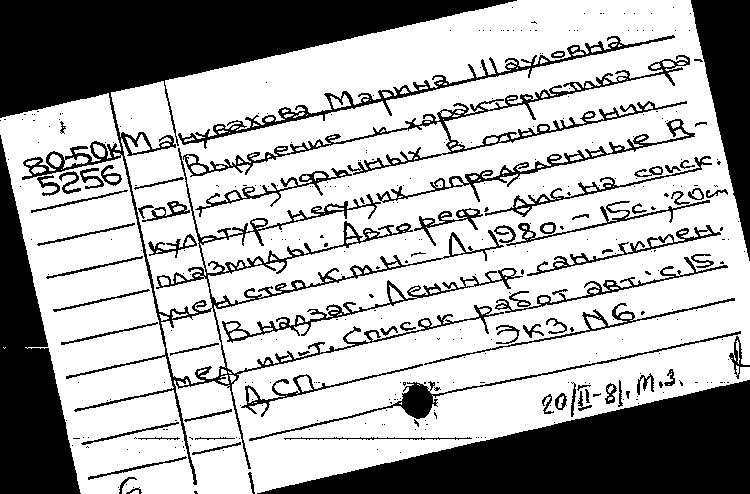 80-50к
5256
Манувахова, Марина Шауловна
Выделение и характеристика фа-
гов, специфичных в отношении
культур, несущих определенные R-
плазмиды: Автореф. дис. на соиск.
учен. степ. к.м.н. - Л., 1980. - 15с.; 20см
В надзаг.: Ленингр. сан.-гигиен.
мед. ин-т. Список работ авт.: с.15.
Экз. N6.
ДСП.
20/II-81. М.З.